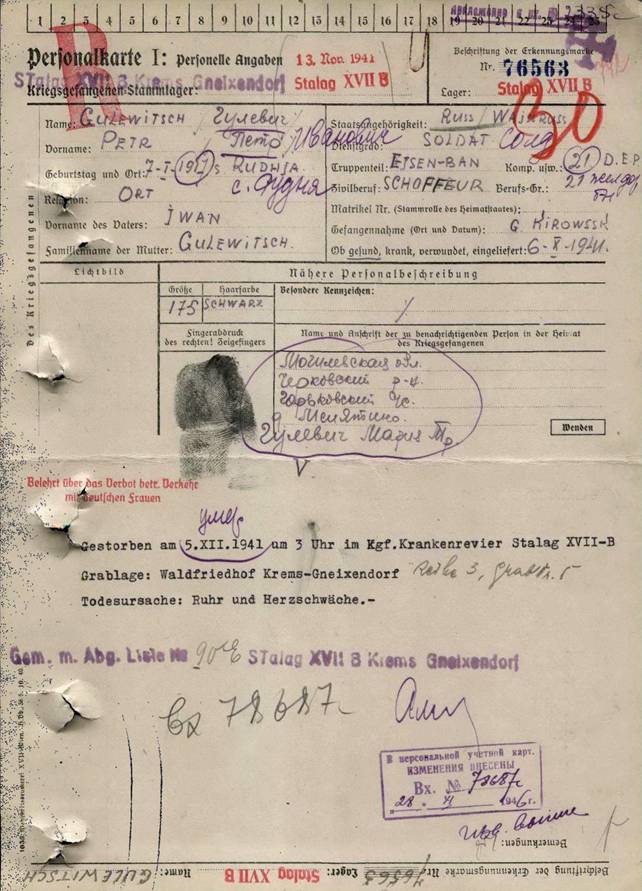 1 2 3 4 5 6 7 8 9 10 11 12 13 14 15 16 17 18 19 20 21 22 23 24 25
Personalkarte I: Personelle Angaben
13. Nov. 1941
Beschriftung der Erkennungsmarke
Nr. 76563
STalag XVII B Krems Gneixendorf
Kriegsgefangenen-Stammlager: Stalag XVII B
Lager: Stalag XVII B
R
30
Des Kriegsgefangenen
Name: GULEWITSCH Гулевич
Vorname: PETR Петр Иванович
Geburtstag und Ort: 7-I-1917 RUDNJA
с. Рудня
Religion: ORT
Vorname des Vaters: IWAN
Familienname der Mutter: GULEWITSCH.
Staatsangehörigkeit: RUSS/
Dienstgrad: SOLDAT
Truppenteil: EISEN-BAN Komp. usw.: 21 D.E.P.
Zivilberuf: SCHOFFEUR Berufs-Gr.:
Matrikel Nr. (Stammrolle des Heimatstaates):
Gefangennahme (Ort und Datum): G. KIROWSSK
Ob gesund, krank, verwundet, eingeliefert: 6-X-1941.
Lichtbild
Nähere Personalbeschreibung
Größe Haarfarbe Besondere Kennzeichen:
175 SCHWARZ
Fingerabdruck
des rechten! Zeigefingers
Name und Anschrift der zu benachrichtigenden Person in der Heimat
des Kriegsgefangenen
Могилевская обл.
р-н.
Горьковский с.
д. Мелятино.
Гулевич Мария
Wenden
Belehrt über das Verbot betr. Verkehr
mit deutschen Frauen
умер
Gestorben am 5.XII.1941 um 3 Uhr im Kgf.Krankenrevier Stalag XVII-B
Grablage: Waldfriedhof Krems-Gneixendorf Reihe 3, Grab Nr. 5
Todesursache: Ruhr und Herzschwäche.-
Gem. m. Abg. Liste № STalag XVII B Krems Gneixendorf
Вх 78687
В персональной учетной карт.
ИЗМЕНЕНИЯ ВНЕСЕНЫ
Вх. №
28 1946г.
Bemerkungen:
Beschriftung der Erkennungsmarke Nr. 76563 Lager: Stalag XVII B Name: GULEWITSCH